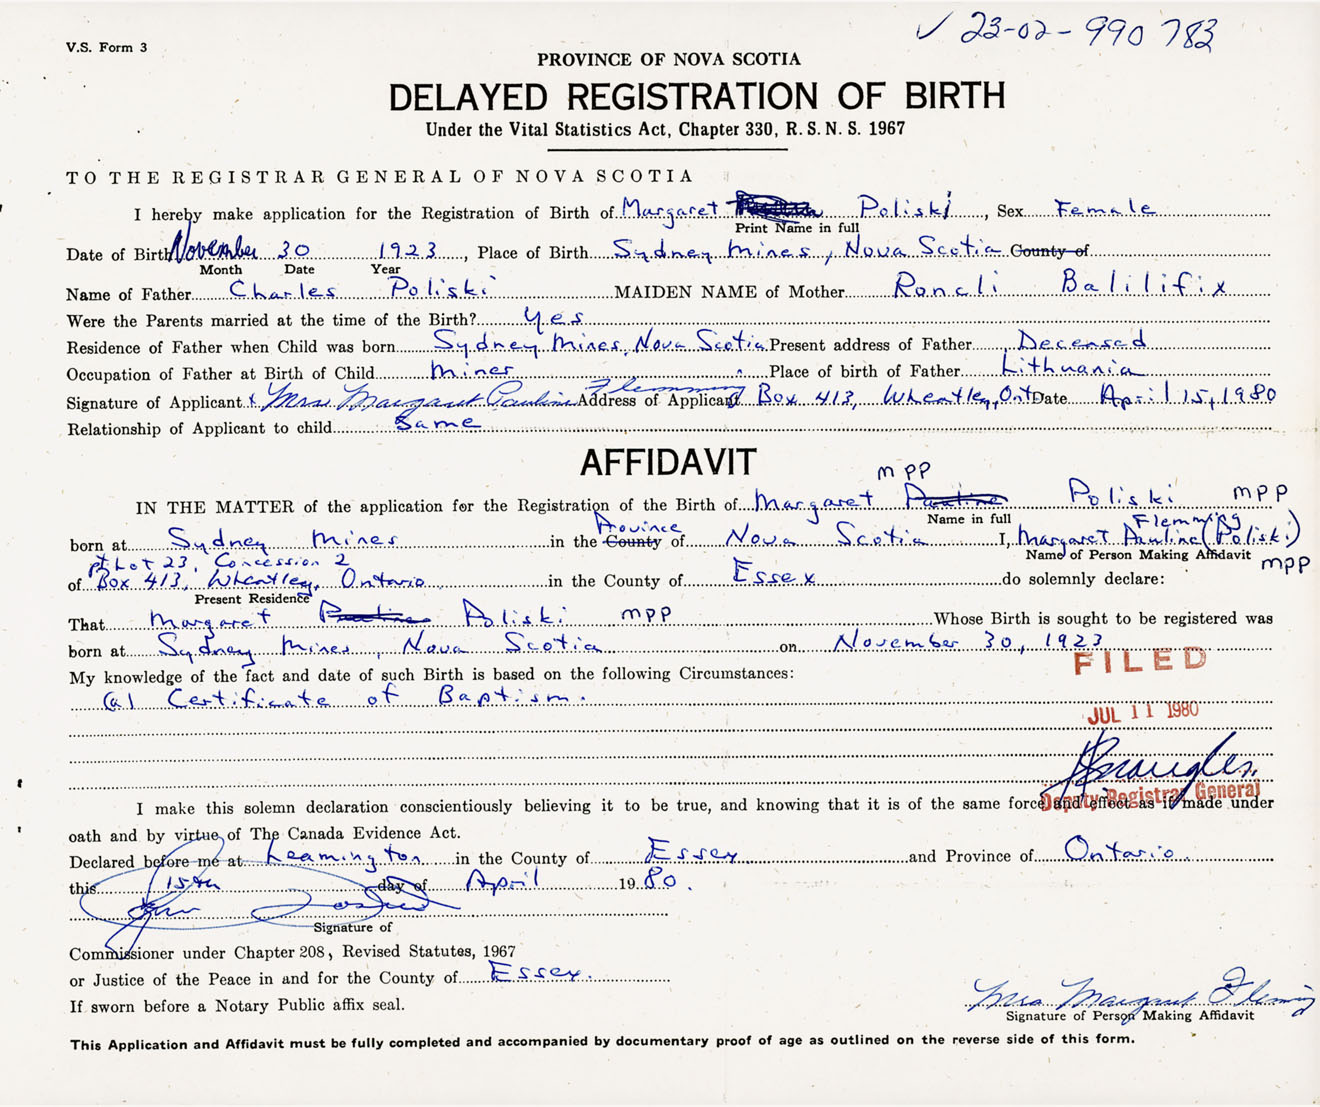 ✓ 23-02-990 783
V.S. Form 3
PROVINCE OF NOVA SCOTIA
DELAYED REGISTRATION OF BIRTH
Under the Vital Statistics Act, Chapter 330, R.S.N.S. 1967
TO THE REGISTRAR GENERAL OF NOVA SCOTIA
I hereby make application for the Registration of Birth of Margaret Poliski, Sex Female
Print Name in full
Date of Birth November 30 1923, Place of Birth Sydney Mines, Nova Scotia County of
Month Date Year
Name of Father Charles Poliski MAIDEN NAME of Mother Roncli Balilifix
Were the Parents married at the time of the Birth? Yes
Residence of Father when Child was born Sydney Mines, Nova Scotia Present address of Father Deceased
Occupation of Father at Birth of Child Miner Place of birth of Father Lithuania
Flemming
Signature of Applicant x Mrs. Margaret Pauline Address of Applicant Box 413, Wheatley, Ont Date April 15, 1980
Relationship of Applicant to child Same
AFFIDAVIT
MPP
IN THE MATTER of the application for the Registration of the Birth of Margaret Pauline Poliski MPP
Name in full
Province Flemming
born at Sydney Mines in the County of Nova Scotia I, Margaret Pauline (Poliski)
Name of Person Making Affidavit MPP
pt Lot 23, Concession 2
of Box 413, Wheatley, Ontario in the County of Essex do solemnly declare:
Present Residence
That Margaret Pauline Poliski MPP Whose Birth is sought to be registered was
born at Sydney Mines, Nova Scotia on November 30, 1923
FILED
My knowledge of the fact and date of such Birth is based on the following Circumstances:
(a) Certificate of Baptism.
JUL 11 1980
Deputy Registrar General
I make this solemn declaration conscientiously believing it to be true, and knowing that it is of the same force and effect as if made under
oath and by virtue of The Canada Evidence Act.
Declared before me at Leamington in the County of Essex and Province of Ontario.
this 15th day of April 1980.
Signature of
Commissioner under Chapter 208, Revised Statutes, 1967
or Justice of the Peace in and for the County of Essex.
If sworn before a Notary Public affix seal.
Mrs Margaret Fleming
Signature of Person Making Affidavit
This Application and Affidavit must be fully completed and accompanied by documentary proof of age as outlined on the reverse side of this form.